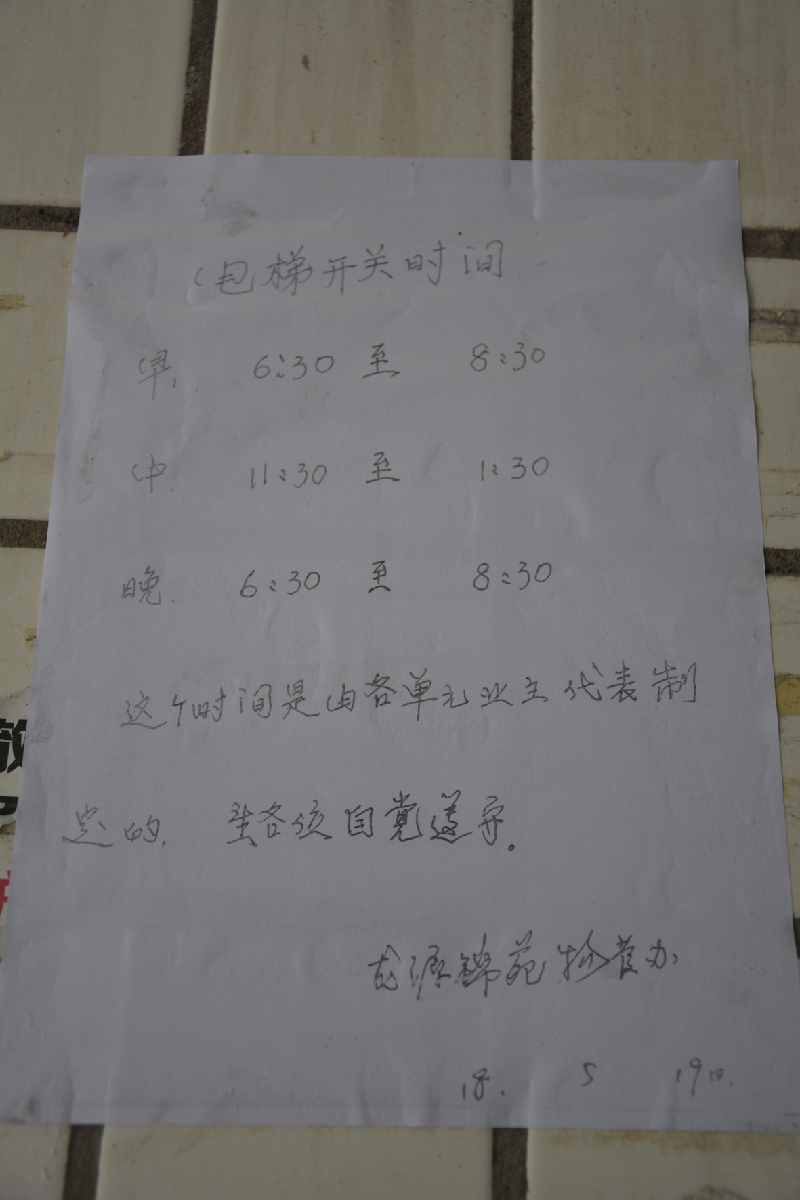 电梯开关时间
早: 6:30 至 8:30
中. 11:30 至 1:30
晚. 6:30 至 8:30
这个时间是由各单元业主代表制
定的. 望各位自觉遵守。
龙源锦苑物管办
18. 5 19日.